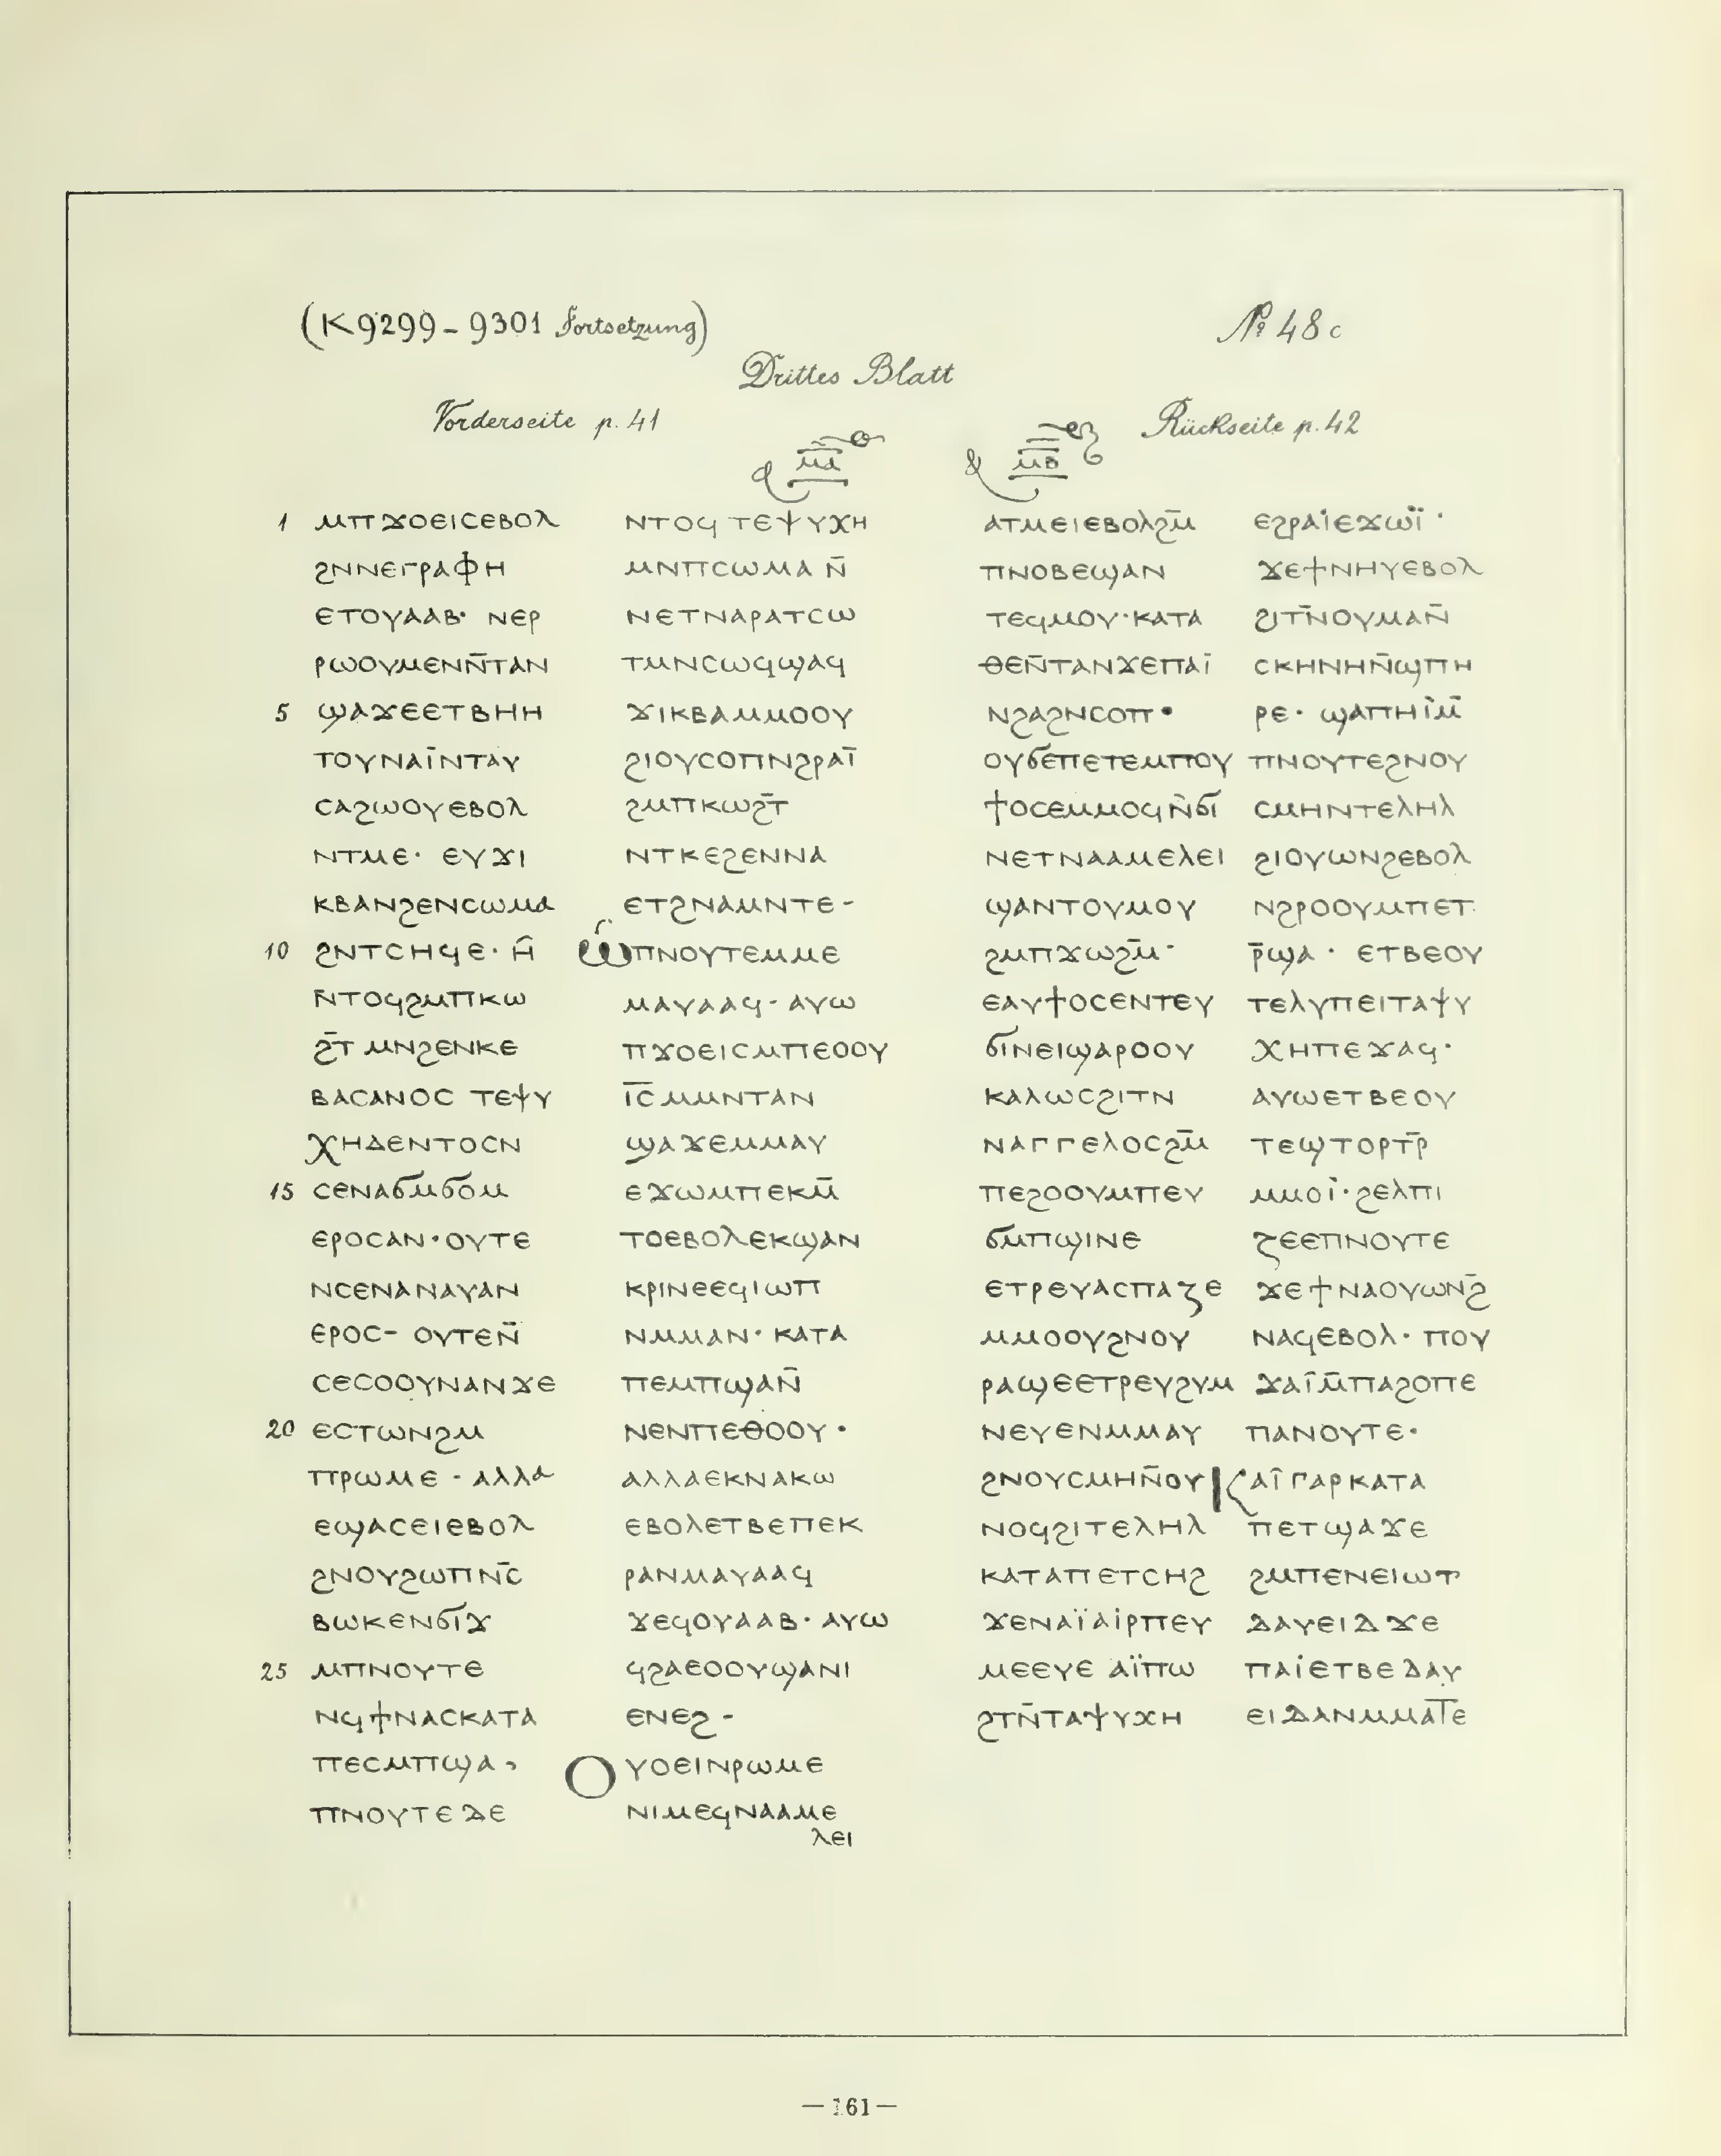 (K9299-9301 Fortsetzung)
№ 48c
Drittes Blatt
Vorderseite p. 41
Rückseite p. 42
ⲙⲁ
ⲙⲃ
1 ⲙⲡϫⲟⲉⲓⲥⲉⲃⲟⲗ
ϩⲛⲛⲉⲅⲣⲁⲫⲏ
ⲉⲧⲟⲩⲁⲁⲃ· ⲛⲉⲣ
ⲣⲱⲟⲩⲙⲉⲛⲛ̄ⲧⲁⲛ
5 ϣⲁϫⲉⲉⲧⲃⲏⲏ
ⲧⲟⲩⲛⲁⲓ̈ⲛⲧⲁⲩ
ⲥⲁϩⲱⲟⲩⲉⲃⲟⲗ
ⲛⲧⲙⲉ· ⲉⲩϫⲓ
ⲕⲃⲁⲛϩⲉⲛⲥⲱⲙⲁ
10 ϩⲛⲧⲥⲏϥⲉ· ⲏ̄
ⲛ̄ⲧⲟϥϩⲙⲡⲕⲱ
ϩ̄ⲧ ⲙⲛϩⲉⲛⲕⲉ
ⲃⲁⲥⲁⲛⲟⲥ ⲧⲉⲯⲩ
ⲭⲏⲇⲉⲛⲧⲟⲥⲛ
15 ⲥⲉⲛⲁϭⲙϭⲟⲙ
ⲉⲣⲟⲥⲁⲛ·ⲟⲩⲧⲉ
ⲛⲥⲉⲛⲁⲛⲁⲩⲁⲛ
ⲉⲣⲟⲥ- ⲟⲩⲧⲉⲛ̄
ⲥⲉⲥⲟⲟⲩⲛⲁⲛϫⲉ
20 ⲉⲥⲧⲱⲛϩⲙ
ⲡⲣⲱⲙⲉ - ⲁⲗⲗⲁ
ⲉϣⲁⲥⲉⲓⲉⲃⲟⲗ
ϩⲛⲟⲩϩⲱⲡⲛ̄ⲥ
ⲃⲱⲕⲉⲛϭⲓϫ
25 ⲙⲡⲛⲟⲩⲧⲉ
ⲛϥϯⲛⲁⲥⲕⲁⲧⲁ
ⲡⲉⲥⲙⲡϣⲁ,
ⲡⲛⲟⲩⲧⲉⲇⲉ
ⲛⲧⲟϥ ⲧⲉⲯⲩⲭⲏ
ⲙⲛⲡⲥⲱⲙⲁ ⲛ̄
ⲛⲉⲧⲛⲁⲣⲁⲧⲥⲱ
ⲧⲙⲛⲥⲱϥϣⲁϥ
ϫⲓⲕⲃⲁⲙⲙⲟⲟⲩ
ϩⲓⲟⲩⲥⲟⲡⲛϩⲣⲁⲓ̈
ϩⲙⲡⲕⲱϩ̄ⲧ
ⲛⲧⲕⲉϩⲉⲛⲛⲁ
ⲉⲧϩⲛⲁⲙⲛⲧⲉ-
ⲱⲡⲛⲟⲩⲧⲉⲙⲙⲉ
ⲙⲁⲩⲁⲁϥ- ⲁⲩⲱ
ⲡϫⲟⲉⲓⲥⲙⲡⲉⲟⲟⲩ
ⲓ̄ⲥ̄ⲙⲙⲛⲧⲁⲛ
ϣⲁϫⲉⲙⲙⲁⲩ
ⲉϫⲱⲙⲡⲉⲕⲙ̄
ⲧⲟⲉⲃⲟⲗⲉⲕϣⲁⲛ
ⲕⲣⲓⲛⲉⲉϥⲓⲱⲡ
ⲛⲙⲙⲁⲛ· ⲕⲁⲧⲁ
ⲡⲉⲙⲡϣⲁⲛ̄
ⲛⲉⲛⲡⲉⲑⲟⲟⲩ·
ⲁⲗⲗⲁⲉⲕⲛⲁⲕⲱ
ⲉⲃⲟⲗⲉⲧⲃⲉⲡⲉⲕ
ⲣⲁⲛⲙⲁⲩⲁⲁϥ
ϫⲉϥⲟⲩⲁⲁⲃ· ⲁⲩⲱ
ϥϩⲁⲉⲟⲟⲩϣⲁⲛⲓ
ⲉⲛⲉϩ -
ⲟⲩⲟⲉⲓⲛⲣⲱⲙⲉ
ⲛⲓⲙⲉϥⲛⲁⲁⲙⲉ
ⲗⲉⲓ
ⲁⲧⲙⲉⲓⲉⲃⲟⲗϩⲙ̄
ⲡⲛⲟⲃⲉϣⲁⲛ
ⲧⲉϥⲙⲟⲩ·ⲕⲁⲧⲁ
ⲑⲉⲛ̄ⲧⲁⲛϫⲉⲡⲁⲓ̈
ⲛϩⲁϩⲛⲥⲟⲡ·
ⲟⲩϭⲉⲡⲉⲧⲉⲙⲡⲟⲩ
ϯⲟⲥⲉⲙⲙⲟϥⲛ̄ϭⲓ
ⲛⲉⲧⲛⲁⲁⲙⲉⲗⲉⲓ
ϣⲁⲛⲧⲟⲩⲙⲟⲩ
ϩⲙⲡϫⲱϩⲙ̄·
ⲉⲁⲩϯⲟⲥⲉⲛⲧⲉⲩ
ϭⲓⲛⲉⲓϣⲁⲣⲟⲟⲩ
ⲕⲁⲗⲱⲥϩⲓⲧⲛ
ⲛⲁⲅⲅⲉⲗⲟⲥϩⲙ̄
ⲡⲉϩⲟⲟⲩⲙⲡⲉⲩ
ϭⲙⲡϣⲓⲛⲉ
ⲉⲧⲣⲉⲩⲁⲥⲡⲁⲍⲉ
ⲙⲙⲟⲟⲩϩⲛⲟⲩ
ⲣⲁϣⲉⲉⲧⲣⲉⲩϩⲩⲙ
ⲛⲉⲩⲉⲛⲙⲙⲁⲩ
ϩⲛⲟⲩⲥⲙⲏⲛ̄ⲟⲩ
ⲛⲟϥϩⲓⲧⲉⲗⲏⲗ
ⲕⲁⲧⲁⲡⲉⲧⲥⲏϩ
ϫⲉⲛⲁⲓ̈ⲁⲓⲣⲡⲉⲩ
ⲙⲉⲉⲩⲉ ⲁⲓ̈ⲡⲱ
ϩⲧⲛ̄ⲧⲁⲯⲩⲭⲏ
ⲉϩⲣⲁⲓ̈ⲉϫⲱⲓ̈·
ϫⲉϯⲛⲏⲩⲉⲃⲟⲗ
ϩⲓⲧⲛ̄ⲟⲩⲙⲁⲛ̄
ⲥⲕⲏⲛⲏⲛ̄ϣⲡⲏ
ⲣⲉ· ϣⲁⲡⲏⲓ̈ⲙ̄
ⲡⲛⲟⲩⲧⲉϩⲛⲟⲩ
ⲥⲙⲏⲛⲧⲉⲗⲏⲗ
ϩⲓⲟⲩⲱⲛϩⲉⲃⲟⲗ
ⲛϩⲣⲟⲟⲩⲙⲡⲉⲧ
ⲣ̄ϣⲁ· ⲉⲧⲃⲉⲟⲩ
ⲧⲉⲗⲩⲡⲉⲓⲧⲁⲯⲩ
ⲭⲏⲡⲉϫⲁϥ·
ⲁⲩⲱⲉⲧⲃⲉⲟⲩ
ⲧⲉϣⲧⲟⲣⲧⲣ̄
ⲙⲙⲟⲓ̈·ϩⲉⲗⲡⲓ
ⲍⲉⲉⲡⲛⲟⲩⲧⲉ
ϫⲉϯⲛⲁⲟⲩⲱⲛϩ̄
ⲛⲁϥⲉⲃⲟⲗ· ⲡⲟⲩ
ϫⲁⲓ̈ⲙ̄ⲡⲁϩⲟⲡⲉ
ⲡⲁⲛⲟⲩⲧⲉ·
ⲕⲁⲓ̈ⲅⲁⲣⲕⲁⲧⲁ
ⲡⲉⲧϣⲁϫⲉ
ϩⲙⲡⲉⲛⲉⲓⲱⲧ
ⲇⲁⲩⲉⲓⲇ ϫⲉ
ⲡⲁⲓ̈ⲉⲧⲃⲉⲇⲁⲩ
ⲉⲓⲇⲁⲛⲙⲙⲁⲧⲉ
—161—